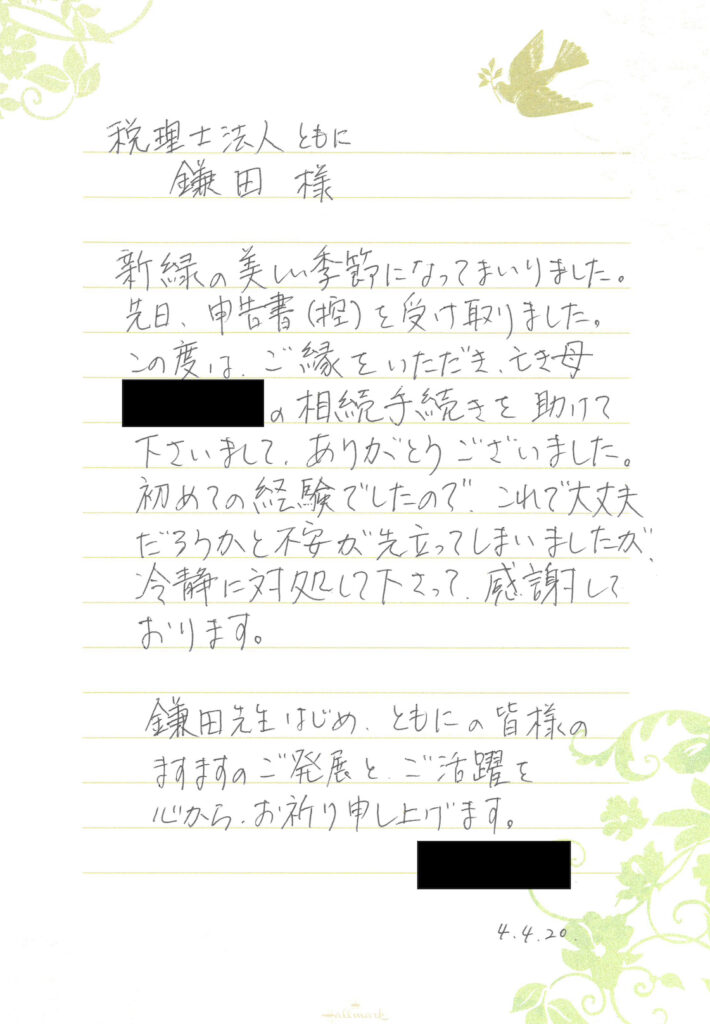 税理士法人ともに
鎌田 様
新緑の美しい季節になってまいりました。
先日、申告書(控)を受け取りました。
この度は、ご縁をいただき、亡き母
の相続手続きを助けて
下さいまして、ありがとうございました。
初めての経験でしたので、これで大丈夫
だろうかと不安が先立ってしまいましたが、
冷静に対処して下さって、感謝して
おります。
鎌田先生はじめ、ともにの皆様の
ますますのご発展と、ご活躍を
心から、お祈り申し上げます。
4.4.20.
Hallmark